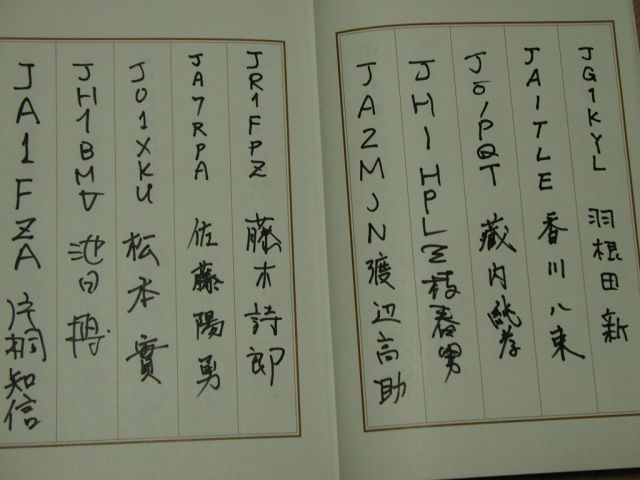 JG1KYL 羽根田新
JA1TLE 香川八束
JO1PQT 蔵内純孝
JH1HPL 三枝春男
JA2MJN 渡辺高助
JR1FPZ 藤木詩郎
JA7RPA 佐藤陽勇
JO1XKU 松本實
JH1BMU 池田博
JA1FZA 片桐知信